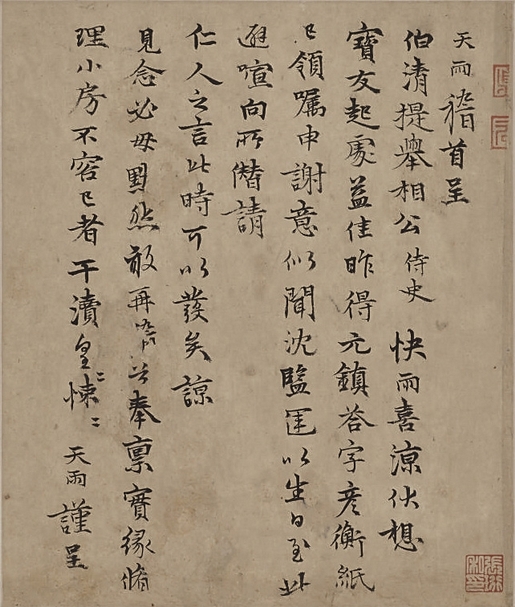 天雨稽首呈
伯清提舉相公侍史 快雨喜涼伏想
寶友起處益佳昨得元鎮答字彦衡紙
已領囑申謝意似聞沈鹽運以生日至此
避喧向所僭請
仁人之言此時可以發矣諒
見念必毋罪然敢再啓奉稟實緣脩
理小房不容已者干瀆皇悚〻
天雨謹呈